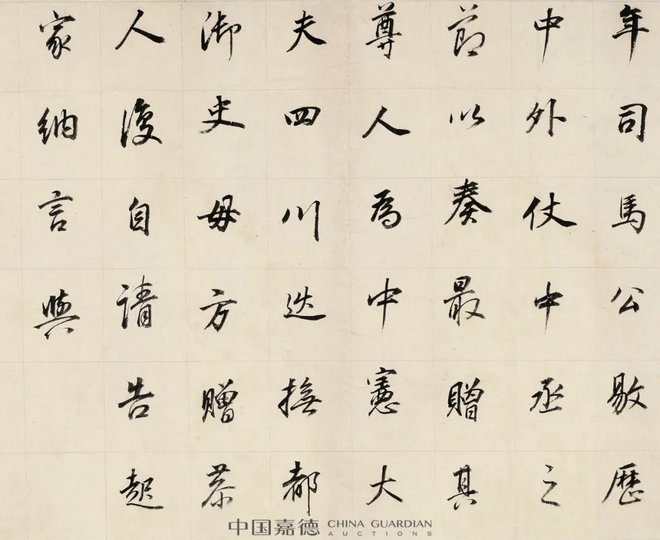 年司馬公敭歷
中外仗中丞之
節以奏最贈其
尊人為中憲大
夫四川巡撫都
御史母方贈恭
人復自請告起
家納言與
中国嘉德 CHINA GUARDIAN
AUCTIONS